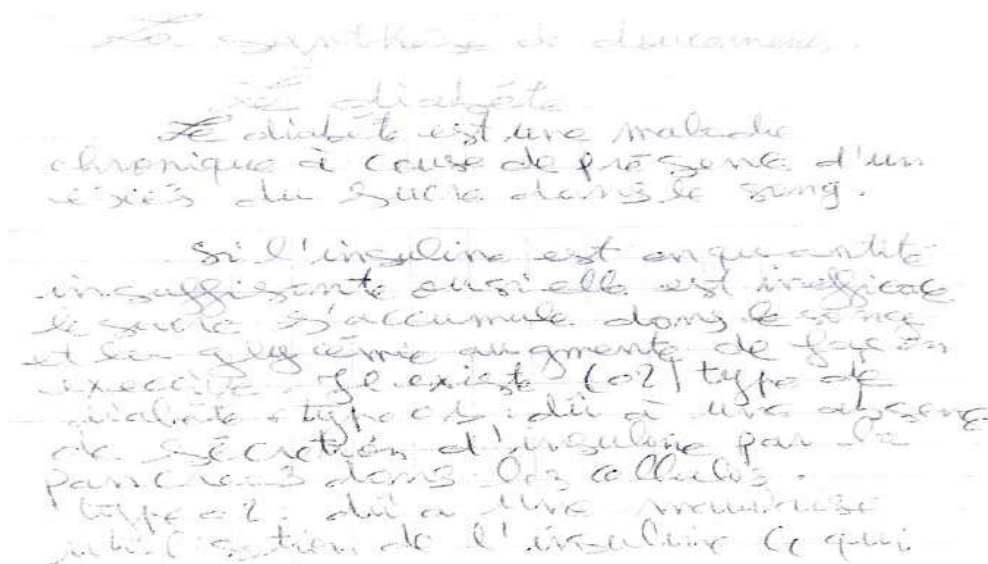 La synthèse de documents.
Le diabète
Le diabète est une maladie
chronique à cause de présence d'un
éxiés du sucre dans le sang.
Si l'insuline est en quantité
insuffisante ou si elle est inefficace
le sucre s'accumule dans le sang
et la glycémie augmente de façon
Il existe (02) type de
diabète type 01 : dû à une absence
de sécrétion d'insuline par le
pancreas dans les cellules.
type 02 : dû a une mauvaise
utilisation de l'insuline ce qui